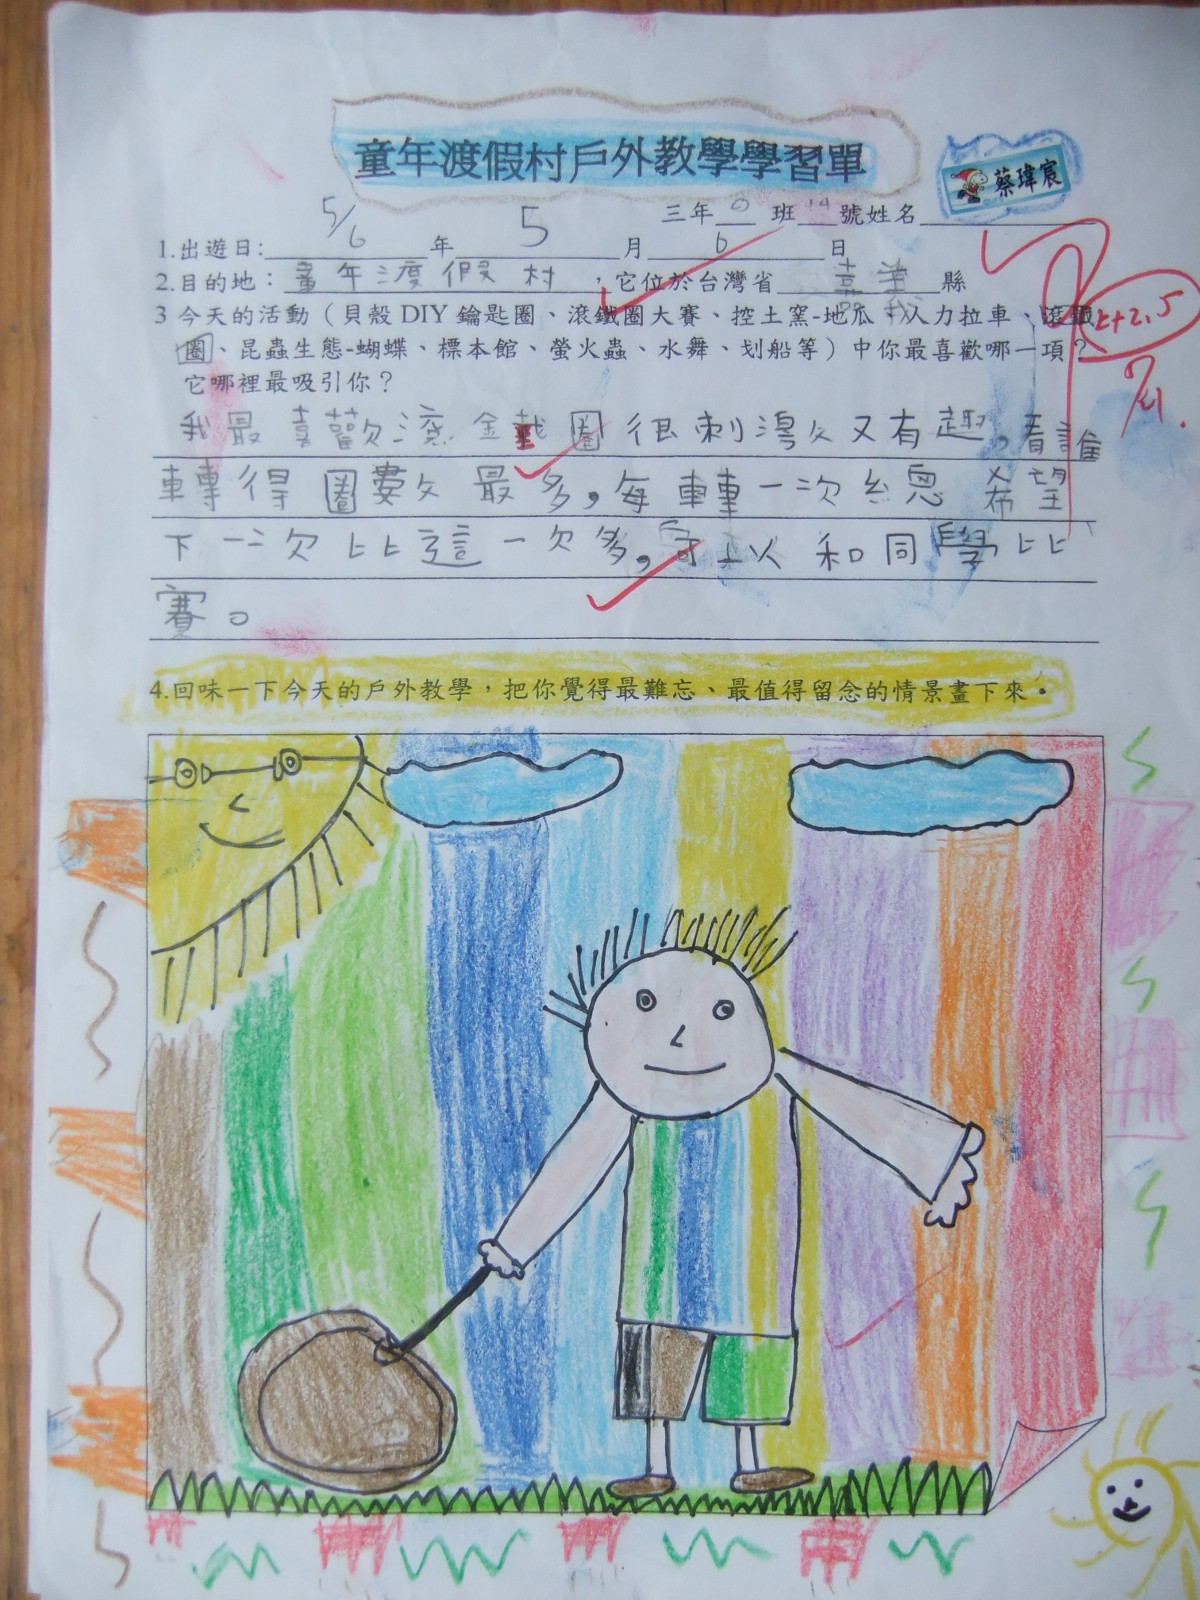 童年渡假村戶外教學學習單
蔡瑋宸
三年 班 14 號姓名
1.出遊日: 5/6 年 5 月 6 日
2.目的地：童年渡假村，它位於台灣省 嘉義 縣
3 今天的活動（貝殼 DIY 鑰匙圈、滾鐵圈大賽、控土窯-地瓜、人力拉車、滾鐵
圈、昆蟲生態-蝴蝶、標本館、螢火蟲、水舞、划船等）中你最喜歡哪一項？
它哪裡最吸引你？
我最喜歡滾鐵圈很刺激又有趣，看誰
轉得圈數最多，每轉一次總希望
下一次比這一次多，可以和同學比
賽。
4.回味一下今天的戶外教學，把你覺得最難忘、最值得留念的情景畫下來。